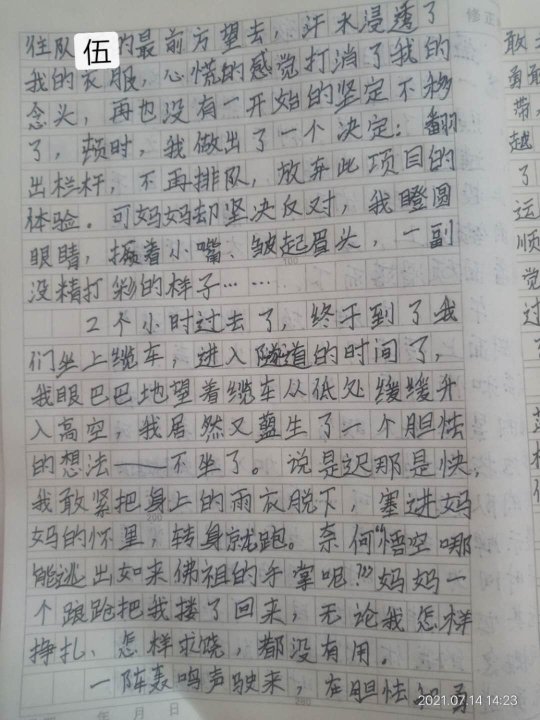 往队伍的最前方望去，汗水浸透了
我的衣服，心慌的感觉打消了我的
念头，再也没有一开始的坚定不移
了，顿时，我做出了一个决定：翻
出栏杆，不再排队，放弃此项目的
体验。可妈妈却坚决反对，我瞪圆
眼睛，撅着小嘴、皱起眉头，一副
没精打彩的样子……
2个小时过去了，终于到了我
们坐上缆车，进入隧道的时间了，
我眼巴巴地望着缆车从低处缓缓升
入高空，我居然又蓝生了一个胆怯
的想法——不坐了。说是迟那是快，
我敢紧把身上的雨衣脱下，塞进妈
妈的怀里，转身就跑。奈何“悟空哪
能逃出如来佛祖的手掌呢？”妈妈一
个踉跄把我搂了回来，无论我怎样
挣扎、怎样求饶，都没有用。
一阵轰鸣声驶来，在胆怯和勇
年 月 日
修正
敢
勇敢
带，
越
了
运
顺
觉
过
100
200
280
2021.07.14 14:23